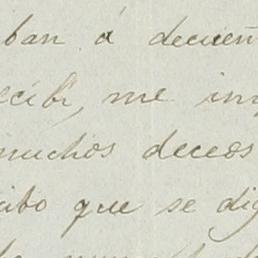 iban á decien
ecibi, me im
muchos deceos
cibo que se dig